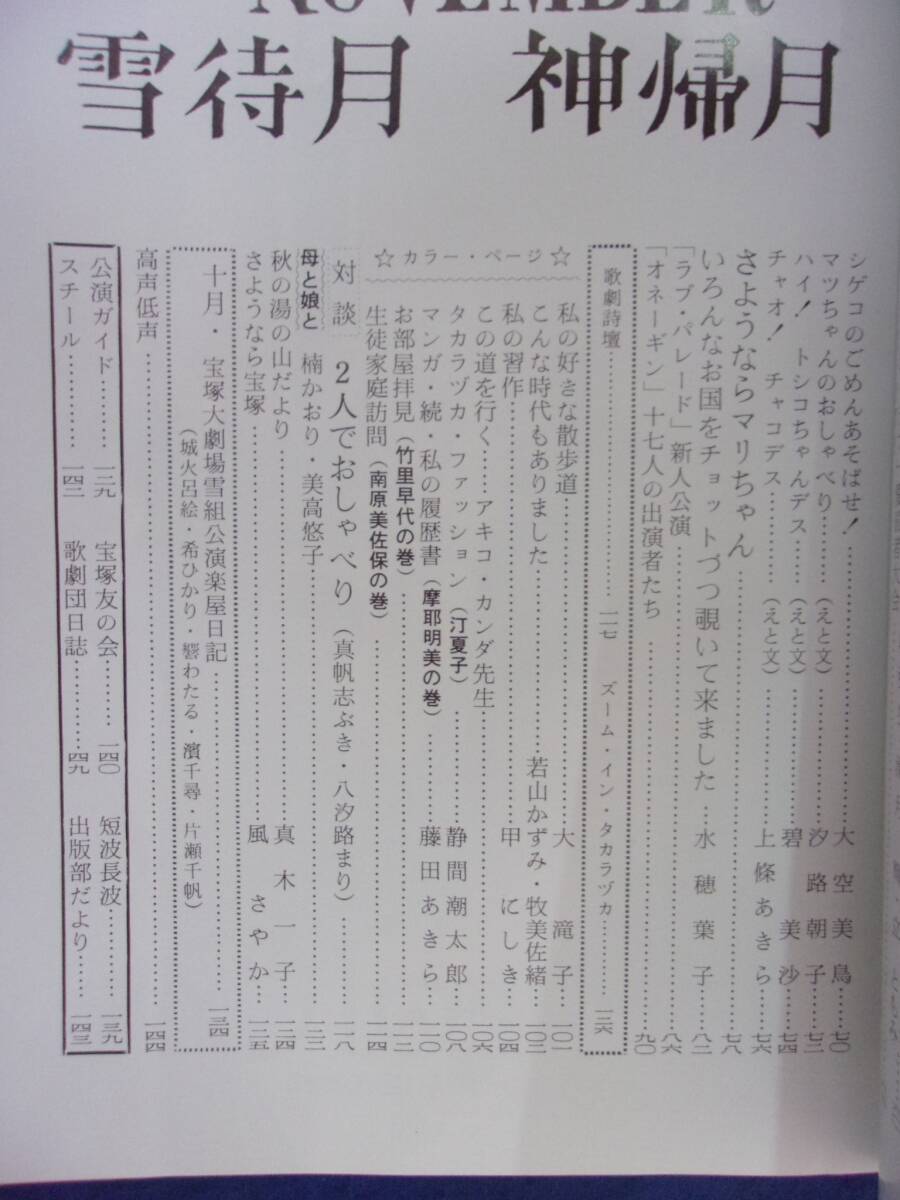 NOVEMBER
雪待月 神帰月
シゲコのごめんあそばせ!……大空美鳥……七〇
マッちゃんのおしゃべり……(えと文)……汐路朝子……七二
ハイ! トシコちゃんデス……(えと文)……碧美沙……七四
チャオ! チャコデス……(えと文)……上條あきら……七六
さようならマリちゃん……七八
いろんなお国をチョットづつ覗いて来ました…水穂葉子……八二
「ラブ・パレード」新人公演……八六
「オネーギン」十七人の出演者たち……九〇
歌劇詩壇……一一七 ズーム・イン・タカラヅカ……一三六
☆カラー・ページ☆
私の好きな散歩道……大滝子……一〇一
こんな時代もありました……若山かずみ・牧美佐緒……一〇二
私の習作……甲にしき……一〇四
この道を行く……アキコ・カンダ先生……一〇六
タカラヅカ・ファッション(汀夏子)……静間潮太郎……一〇八
マンガ・続・私の履歴書(摩耶明美の巻)……藤田あきら……一一〇
お部屋拝見(竹里早代の巻)……一一二
生徒家庭訪問(南原美佐保の巻)……一一四
対談 2人でおしゃべり(真帆志ぶき・八汐路まり)……一一八
母と娘と 楠かおり・美高悠子……一二二
秋の湯の山だより……真木一子……一二四
さようなら宝塚……風さやか……一二五
十月・宝塚大劇場雪組公演楽屋日記……一三四
(城火呂絵・希ひかり・響わたる・濱千尋・片瀬千帆)
高声低声……一四四
公演ガイド……一二九 宝塚友の会……一四〇 短波長波……一三九
スチール……一四二 歌劇団日誌……一四九 出版部だより……一四三